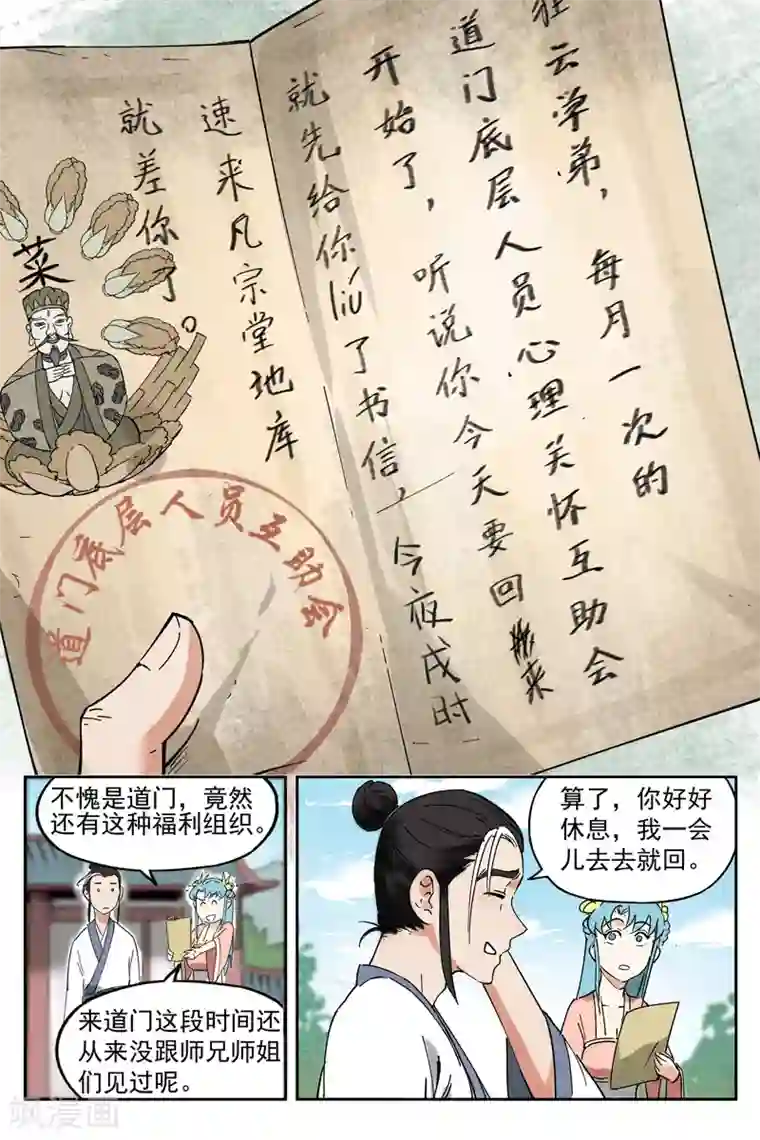 狂云学弟，每月一次的
道门底层人员心理关怀互助会
开始了，听说你今天要回来
就先给你liú了书信，今夜戌时
速来凡宗堂地库
就差你了。
菜
道门底层人员互助会
不愧是道门，竟然
还有这种福利组织。
来道门这段时间还
从来没跟师兄师姐
们见过呢。
算了，你好好
休息，我一会
儿去去就回。
飒漫画